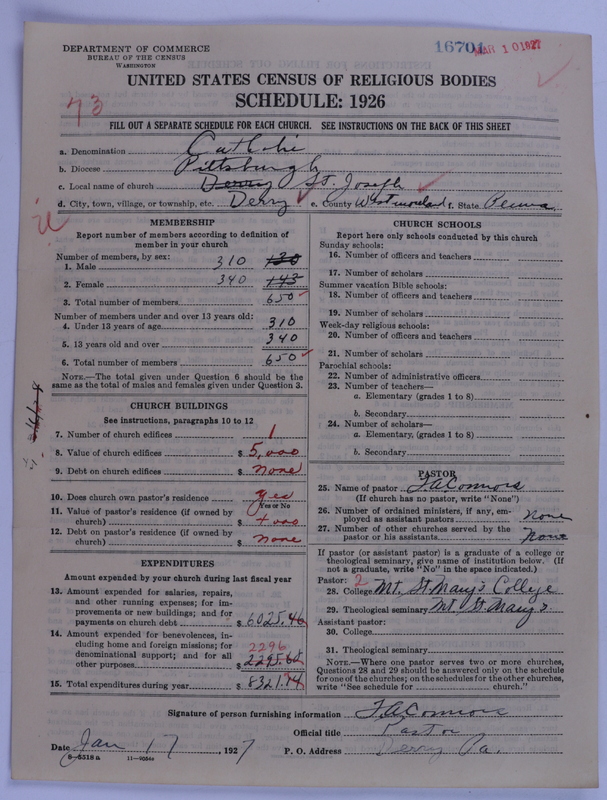 16701 MAR 10 1927
DEPARTMENT OF COMMERCE
BUREAU OF THE CENSUS
WASHINGTON
UNITED STATES CENSUS OF RELIGIOUS BODIES
SCHEDULE: 1926
73
FILL OUT A SEPARATE SCHEDULE FOR EACH CHURCH. SEE INSTRUCTIONS ON THE BACK OF THIS SHEET
a. Denomination Catholic
b. Diocese Pittsburgh
c. Local name of church Derry St. Joseph
d. City, town, village, or township, etc. Derry e. County Westmoreland f. State Penna.
MEMBERSHIP
Report number of members according to definition of
member in your church
Number of members, by sex:
1. Male 310 130
2. Female 340 143
3. Total number of members 650
Number of members under and over 13 years old:
4. Under 13 years of age 310
5. 13 years old and over 340
6. Total number of members 650
NOTE.—The total given under Question 6 should be
same as the total of males and females given under Question 3.
CHURCH BUILDINGS
See instructions, paragraphs 10 to 12
7. Number of church edifices 1
8. Value of church edifices $ 5,000
9. Debt on church edifices $ none
10. Does church own pastor's residence yes
Yes or No
11. Value of pastor's residence (if owned by
church) $ 4000
12. Debt on pastor's residence (if owned by
church) $ none
EXPENDITURES
Amount expended by your church during last fiscal year
13. Amount expended for salaries, repairs,
and other running expenses; for im-
provements or new buildings; and for
payments on church debt $ 6025.46
14. Amount expended for benevolences, in-
cluding home and foreign missions; for 2296
denominational support; and for all
other purposes $ 2295.68
15. Total expenditures during year $ 8321.14
CHURCH SCHOOLS
Report here only schools conducted by this church
Sunday schools:
16. Number of officers and teachers
17. Number of scholars
Summer vacation Bible schools:
18. Number of officers and teachers
19. Number of scholars
Week-day religious schools:
20. Number of officers and teachers
21. Number of scholars
Parochial schools:
22. Number of administrative officers
23. Number of teachers—
a. Elementary (grades 1 to 8)
b. Secondary
24. Number of scholars—
a. Elementary (grades 1 to 8)
b. Secondary
PASTOR
25. Name of pastor F.A. Connors
(If church has no pastor, write "None")
26. Number of ordained ministers, if any, em-
ployed as assistant pastors none
27. Number of other churches served by the
pastor or his assistants none
If pastor (or assistant pastor) is a graduate of a college or
theological seminary, give name of institution below. (If
not a graduate, write "No" in the space indicated.)
Pastor: 2
28. College Mt. St Mary's College
29. Theological seminary Mt. St Mary's.
Assistant pastor:
30. College
31. Theological seminary
NOTE.—Where one pastor serves two or more churches,
Questions 28 and 29 should be answered only on the schedule
for one of the churches; on the schedules for the other churches,
write "See schedule for church."
Signature of person furnishing information F.A. Connors
Official title Pastor
Date Jan 17, 1927 P. O. Address Derry Pa.
8—5518 a 11—9084